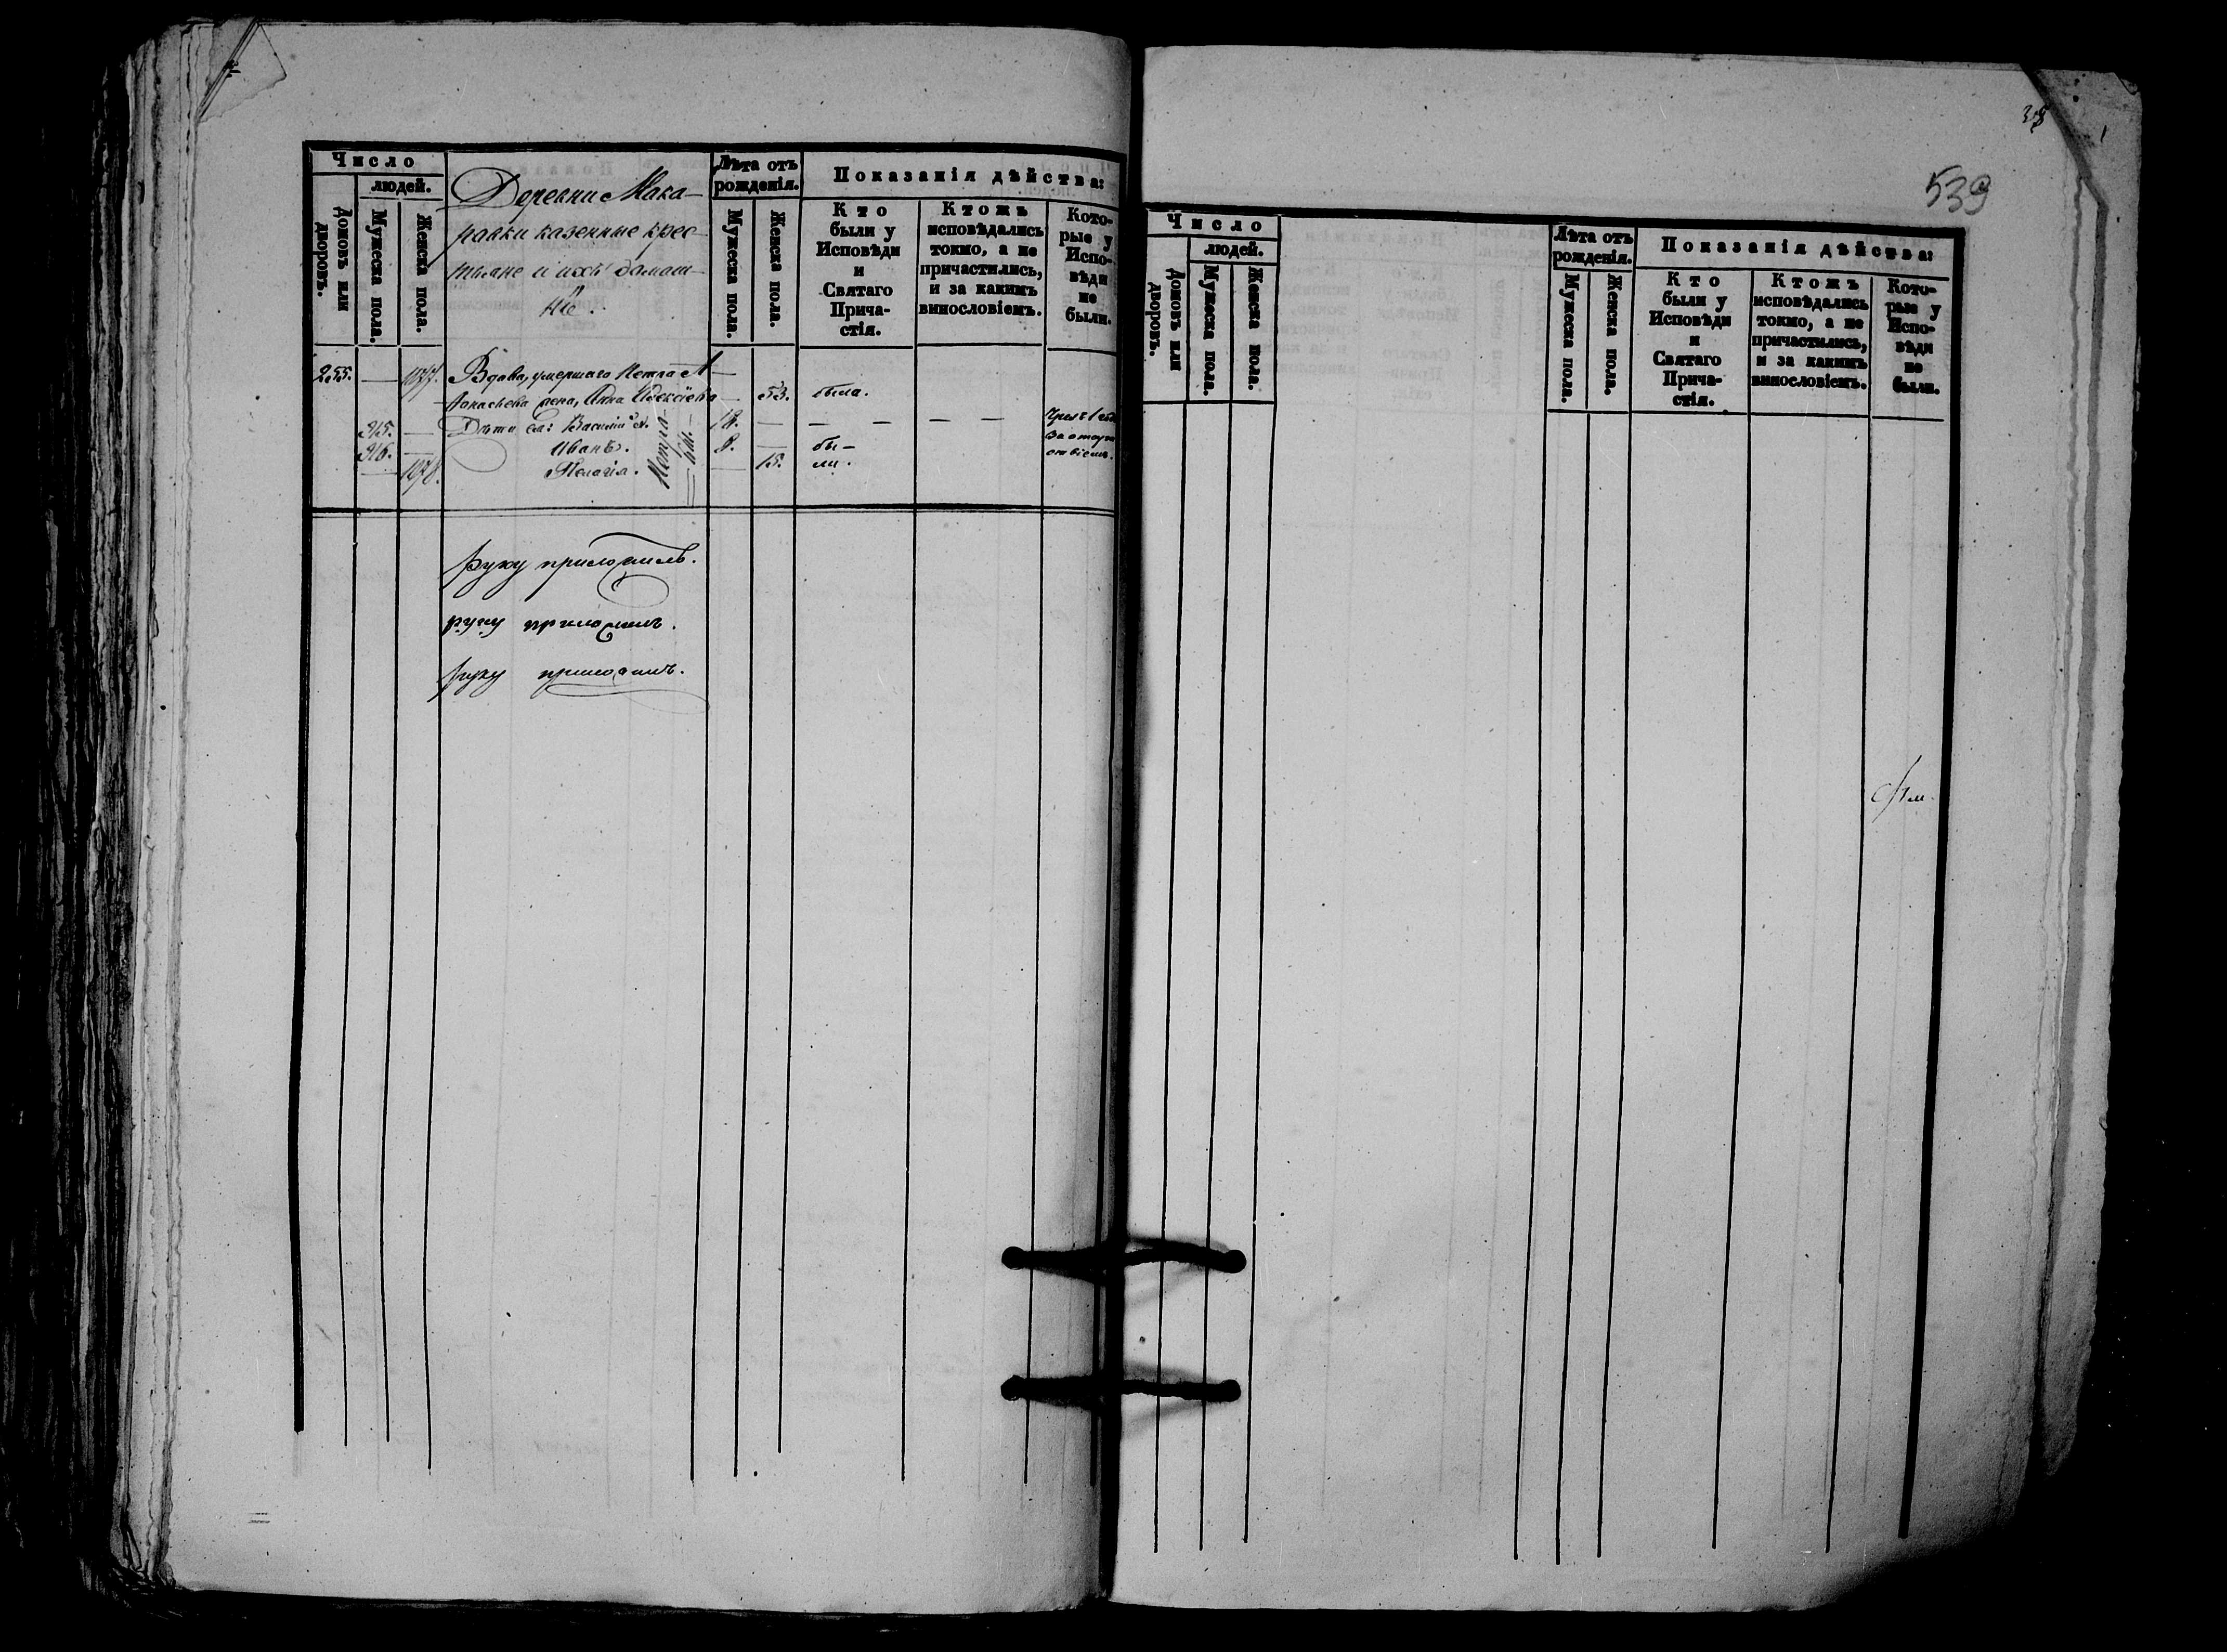 Число
людей.
Домовъ или дворовъ.
Мужеска пола.
Женска пола.
Деревни Мака-
ровки казенные крес-
тьяне и ихъ домаш-
ніе.
Лѣта отъ рожденія.
Мужеска пола.
Женска пола.
Показанія дѣйства:
Кто
были у
Исповѣди
и
Святаго
Прича-
стія.
Ктожъ
исповѣдались
токмо, а не
причастились,
и за какимъ
винословіемъ.
Кото-
рые у
Испо-
вѣди
не
были.
255. — 1077. Вдова, умершаго Петра А- —
ѳонасьева жена, Анна Алексіева — 53. была.
915. — Дѣти ея: Василій 18. — — — — —
916. — Иванъ. 8. — бы-
— 1078. Пелагія. — 15. ли.
Петра-
руку приложилъ.
руку приложилъ.
руку приложилъ.
539
Число
людей.
Домовъ или дворовъ.
Мужеска пола.
Женска пола.
Лѣта отъ рожденія.
Мужеска пола.
Женска пола.
Показанія дѣйства:
Кто
были у
Исповѣди
и
Святаго
Прича-
стія.
Ктожъ
исповѣдались
токмо, а не
причастились,
и за какимъ
винословіемъ.
Кото-
рые у
Испо-
вѣди
не
были.